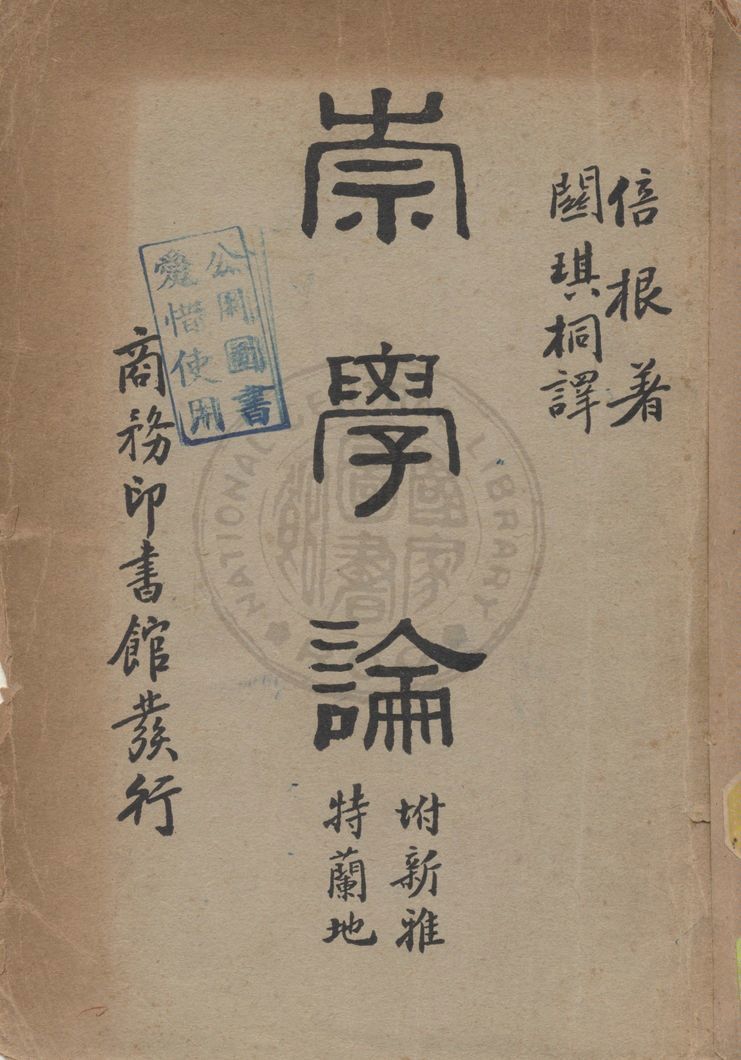 倍根著
關琪桐譯
崇學論
坿新雅
特蘭地
公用圖書
愛惜使用
商務印書館發行
國家圖書館
NATIONAL CENTRAL LIBRARY